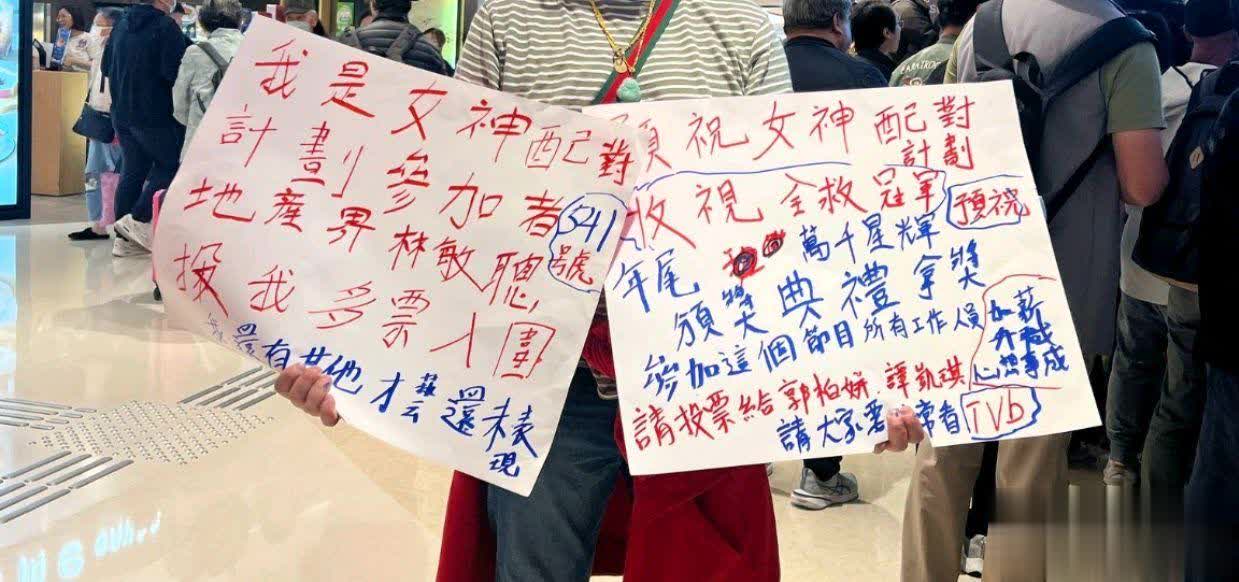 我是女神配對
計劃參加者
541
號
地產界林敏聰
投我多票入圍
還有其他才藝還未表現
預祝女神配對
計劃
收視全救冠軍
預祝
年尾 萬千星輝
頒獎典禮拿獎
參加這個節目所有工作人員
加薪
升職
心想事成
請投票給郭柏妍.譚凱琪
請大家要常看TVb